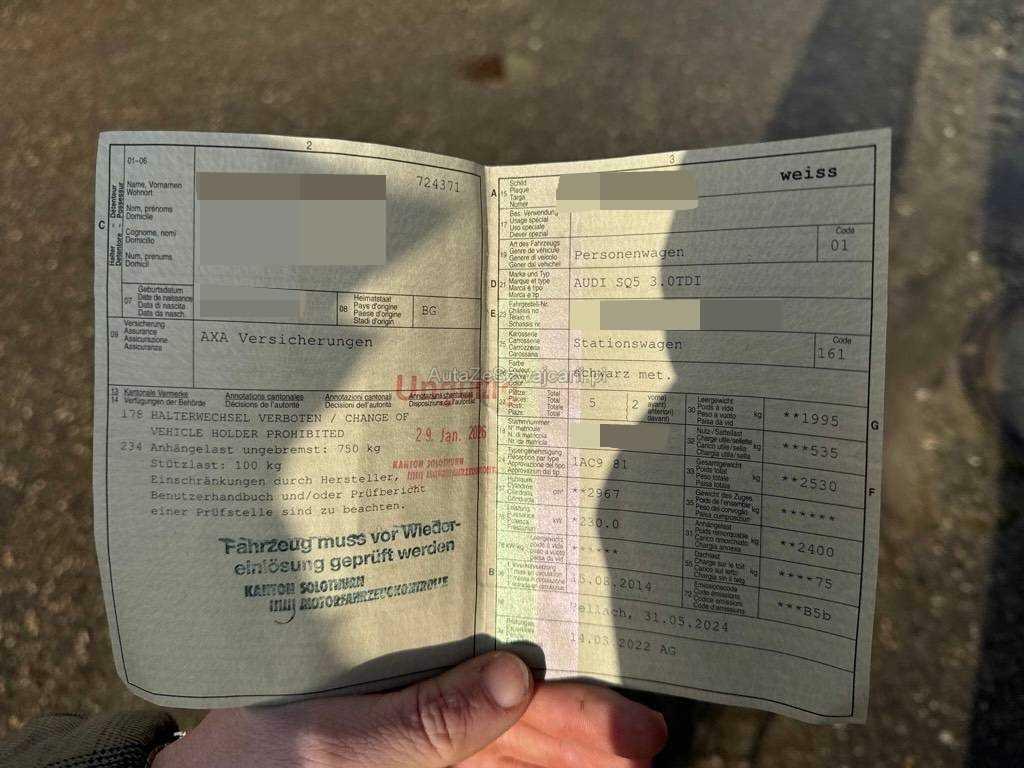 2
01-06
C
Halter - Détenteur
Detentore - Possessur
Name, Vornamen
Wohnort
Nom, prénoms
Domicile
Cognome, nomi
Domicilio
Num, prenums
Domicil
724371
07
Geburtsdatum
Date de naissance
Data di nascita
Data da nasch.
08
Heimatstaat
Pays d'origine
Paese d'origine
Stadi d'origin
BG
09
Versicherung
Assurance
Assicurazione
Assicuranza
AXA Versicherungen
Kantonale Vermerke
Verfügungen der Behörde
Annotations cantonales
Décisions de l'autorité
Annotazioni cantonali
Decisioni dell'autorità
178 HALTERWECHSEL VERBOTEN / CHANGE OF
VEHICLE HOLDER PROHIBITED
234 Anhängelast ungebremst: 750 kg
Stützlast: 100 kg
Einschränkungen durch Hersteller,
Benutzerhandbuch und/oder Prüfbericht
einer Prüfstelle sind zu beachten.
29. Jan.
KANTON SOLOTHURN
Fahrzeug muss vor Wieder-
einlösung geprüft werden
KANTON SOLOTHURN
MOTORFAHRZEUGKONTROLLE
3
weiss
A
15
Schild
Plaque
Targa
Numer
17
Bes. Verwendung
Usage spécial
Uso speciale
Diever spezial
Art des Fahrzeugs
Genre de véhicule
Genere di veicolo
Gener dal vehichel
Personenwagen
Code
01
D
21
Marke und Typ
Marque et type
Marca e tipo
Marca e tip
AUDI SQ5 3.0TDI
E
23
Fahrgestell-Nr.
Châssis no
Telaio n.
Schassis nr.
25
Karosserie
Carrosserie
Carrozzeria
Carossaria
Stationswagen
Code
161
Farbe
Couleur
schwarz met.
AutaZeSzwajcarii.pl
Plätze
Places
Total
Total
Totale
Total
5
2
vorne)
avant)
anteriori)
davant)
30
Leergewicht
Poids à vide
Peso a vuoto
Paisa da vid
kg
**1995
G
Stammnummer
N° matricule
N. di matricola
Nr. da matricla
32
Nutz-/Sattellast
Charge utile/sellette
Carico utile/sella
Chargia utila/sella
kg
**535
24
Typengenehmigung
Réception par type
Approvazione del tipo
Approvaziun dal tip
1AC9 81
33
Gesamtgewicht
Poids total
Peso totale
Paisa totala
kg
**2530
F
Hubraum
Cylindrée
Cilindrata
cm³
**2967
35
Gewicht des Zuges
Poids de l'ensemble
Peso del convoglio
Paisa cumposiziun
kg
******
Leistung
Puissance
Potenza
kW
*230.0
31
Anhängelast
Poids remorquable
Carico rimorchiato
Chargia annexa
kg
**2400
Leergewicht
poids à vide
peso a vuoto
paisa da vid
******
55
Dachlast
Charge sur le toit
Carico sul tetto
Chargia sin il tetg
kg
****75
B
36
1. Inverkehrsetzung
15.08.2014
72
Emissionscode
Code émissions
Codice emissioni
Code d'emissiuns
***B5b
Bellach, 31.05.2024
14.03.2022 AG